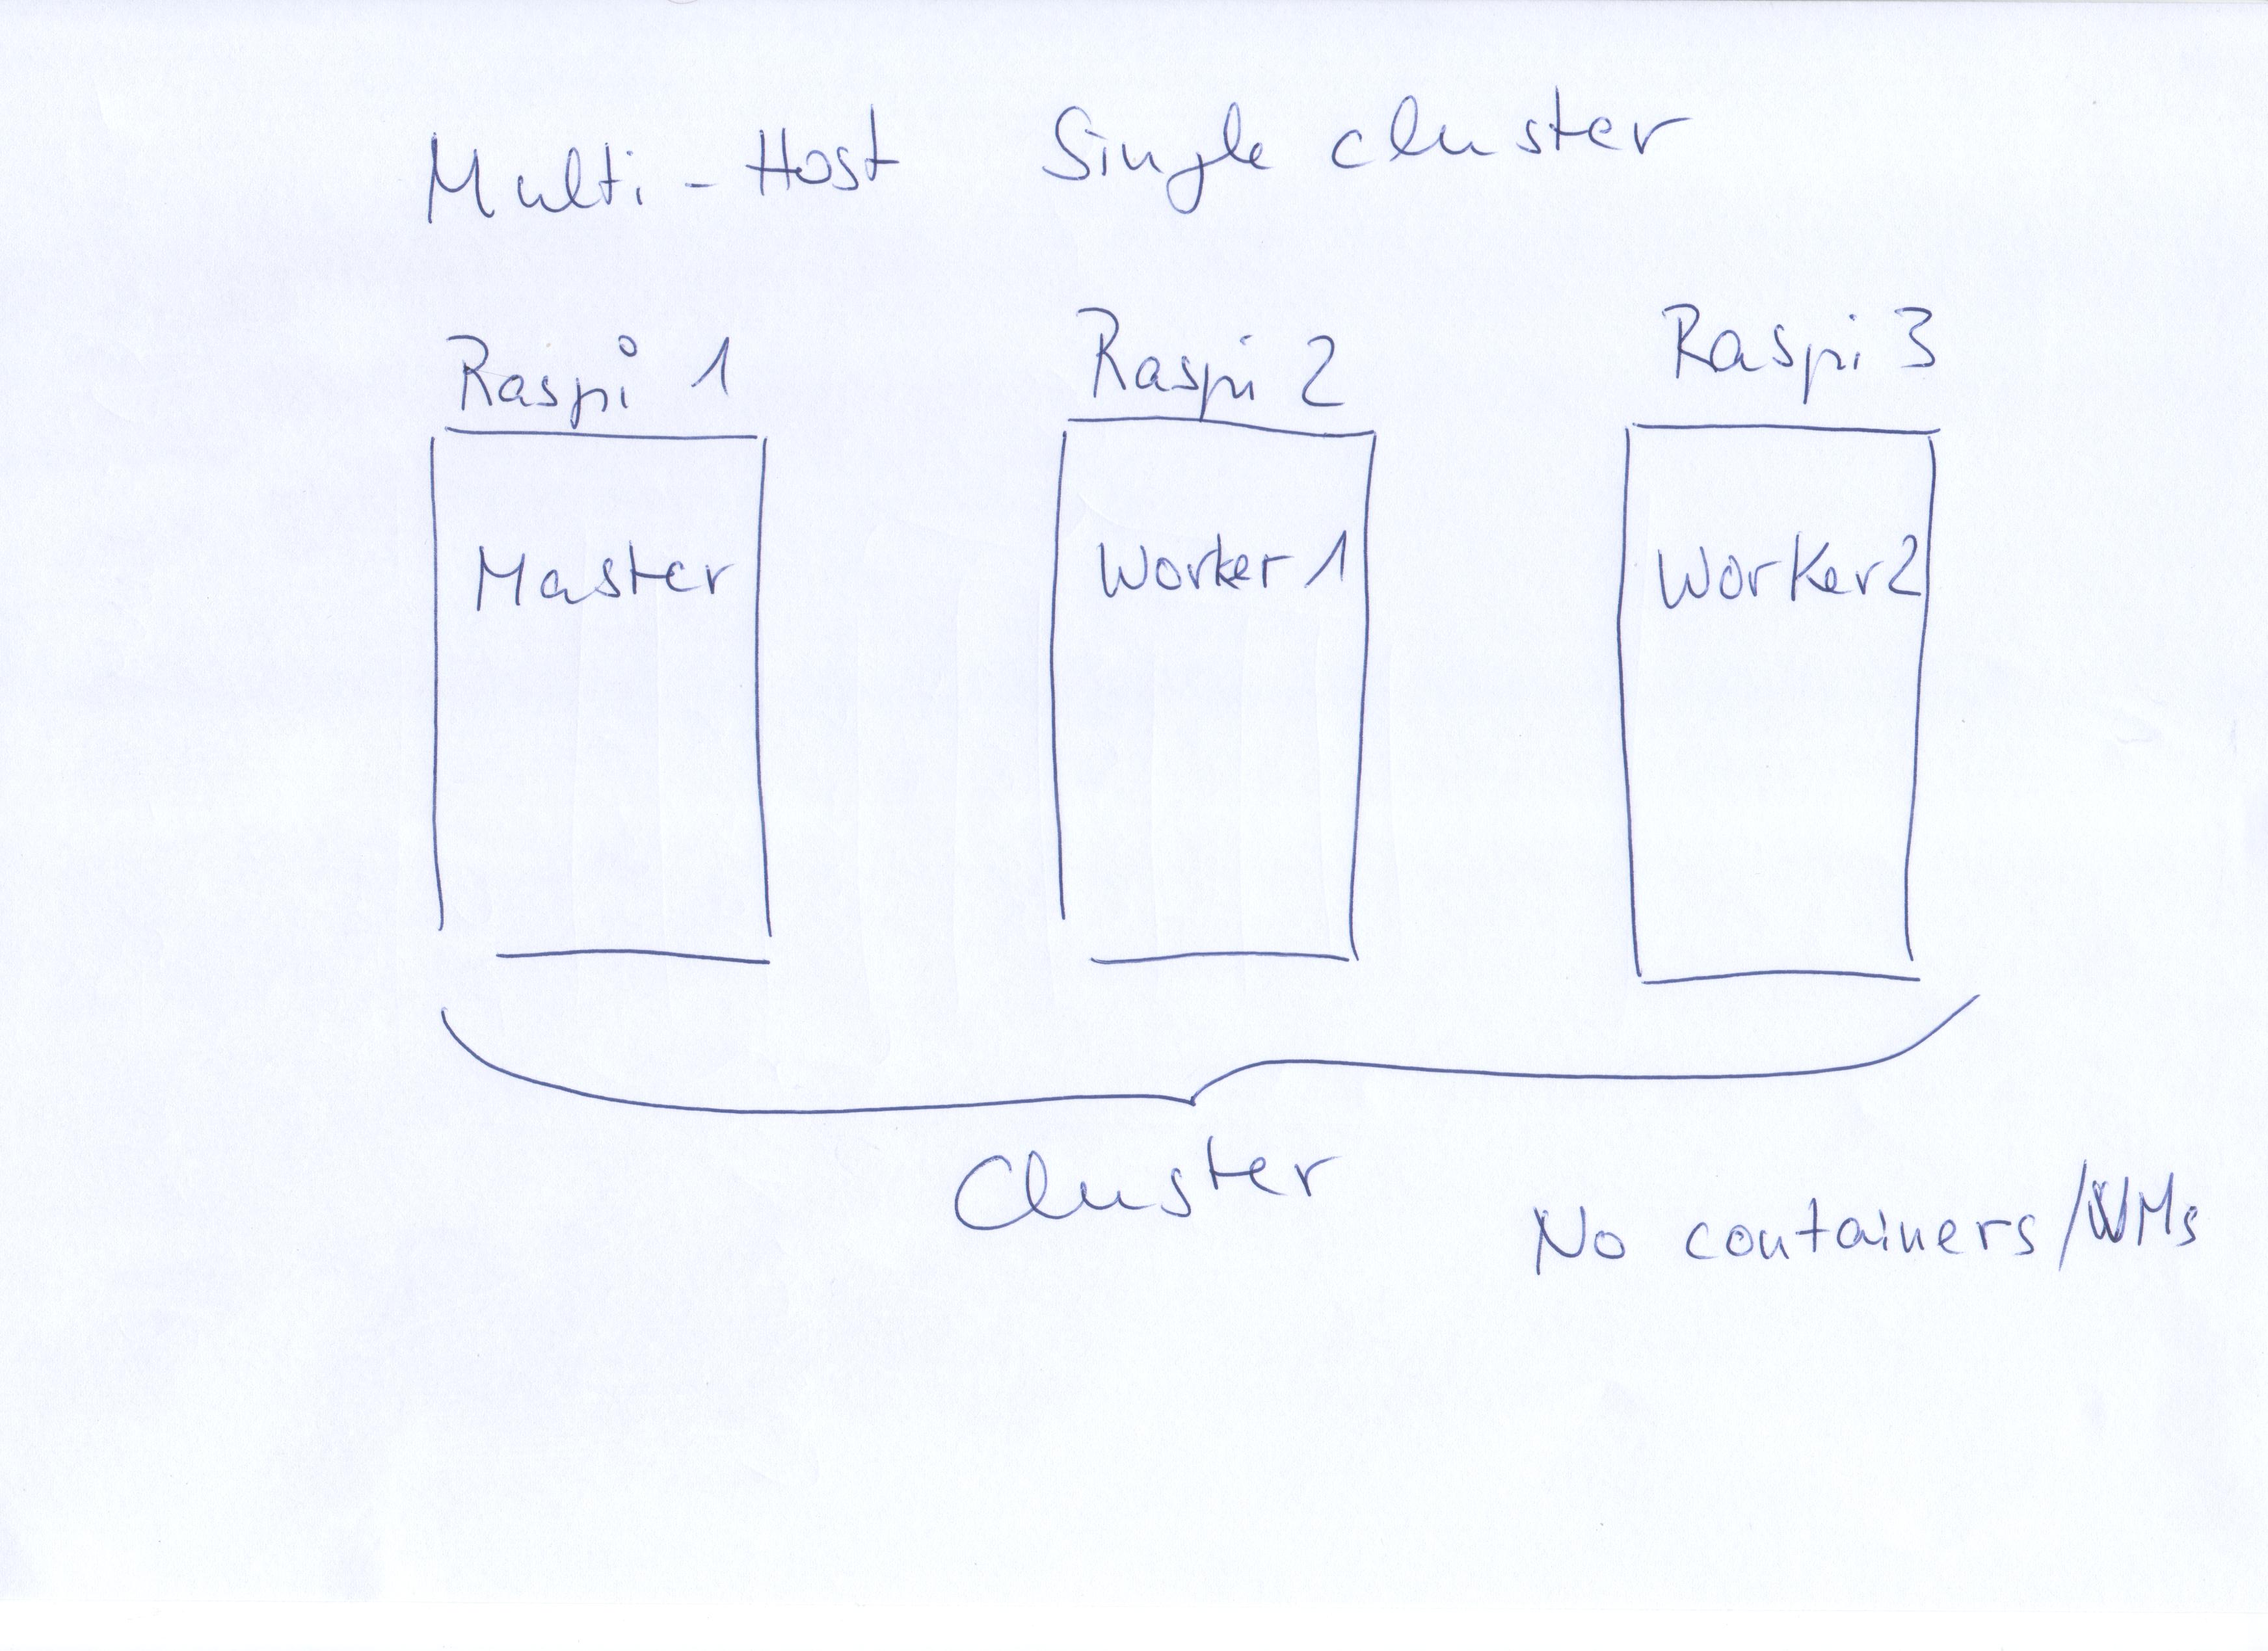 Multi-Host Single cluster
Raspi 1 Raspi 2 Raspi 3
Master Worker 1 Worker 2
Cluster
No containers/VMs